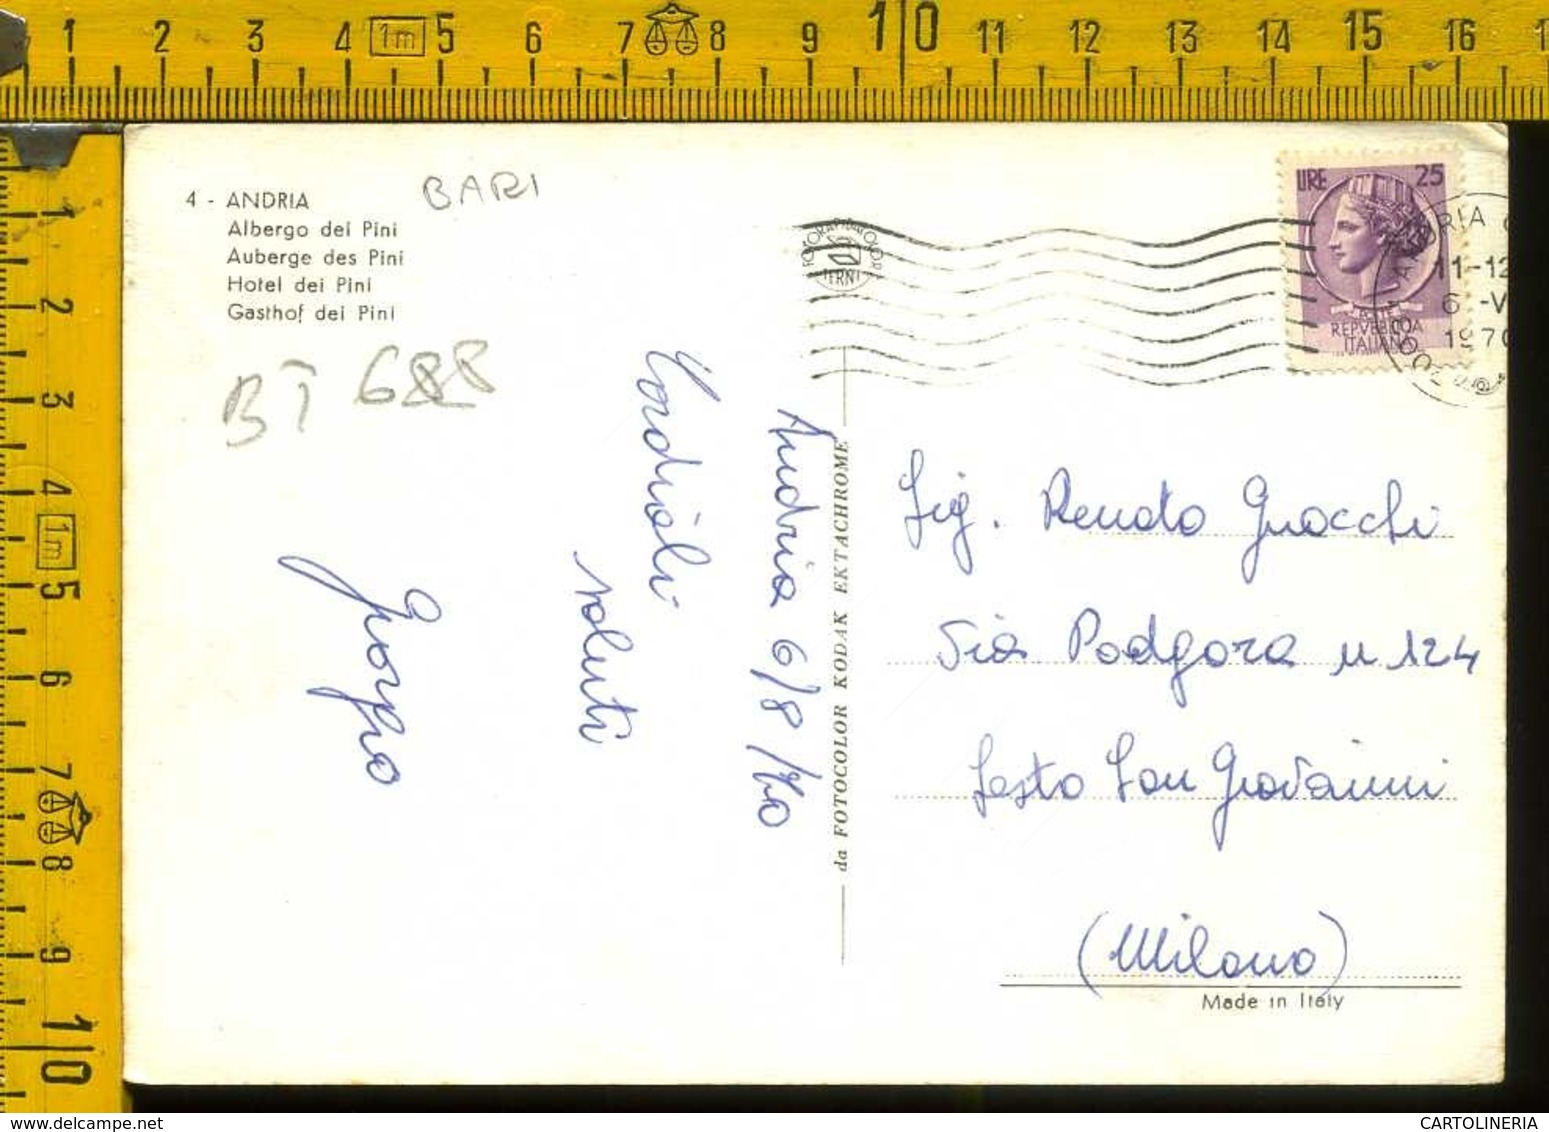 1 2 3 4 1m 5 6 7 8 9 10 11 12 13 14 15 16 1
1 2 3 4 1m 5 6 7 8 9 10
4 - ANDRIA
Albergo dei Pini
Auberge des Pini
Hotel dei Pini
Gasthof dei Pini
BARI
BT 688
Andria 6/8/70
Cordiali
saluti
Giorgio
da FOTOCOLOR KODAK EKTACHROME
TERNI
LIRE 25
REPVBBLICA
ITALIANA
ANDRIA
11-12
6 -V
1970
Sig. Renato Gnocchi
Via Podgora n 124
Sesto San Giovanni
(Milano)
Made in Italy
www.delcampe.net
CARTOLINERIA